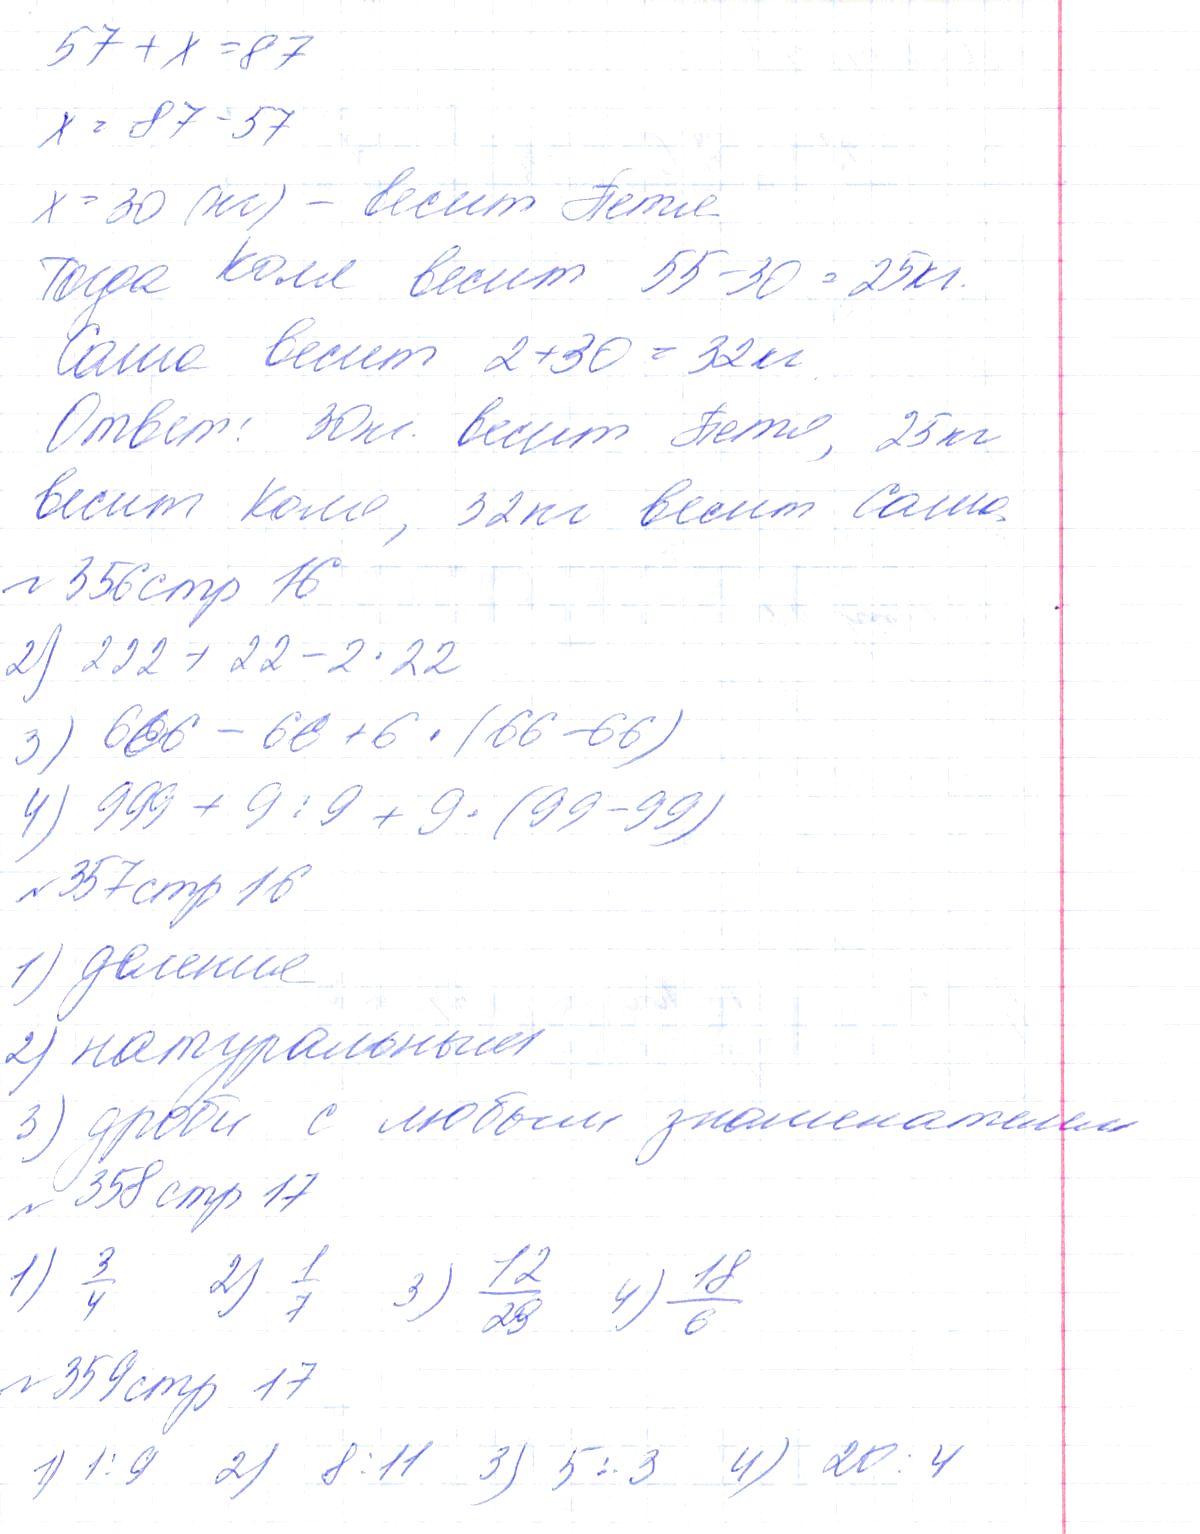 57 + x = 87
x = 87 - 57
x = 30 (кг) - весит Петя
Тогда Коля весит 55 - 30 = 25 кг.
Саша весит 2 + 30 = 32 кг
Ответ: 30 кг. весит Петя, 25 кг
весит Коля, 32 кг весит Саша.
№ 356 стр 16
2) 222 + 22 - 2 · 22
3) 666 - 66 + 6 · (66 - 66)
4) 999 + 9 : 9 + 9 · (99 - 99)
№ 357 стр 16
1) деление
2) натуральным
3) дроби с любым знаменателем
№ 358 стр 17
1) 3/4 2) 1/7 3) 12/29 4) 18/6
№ 359 стр 17
1) 1 : 9 2) 8 : 11 3) 5 : 3 4) 20 : 4